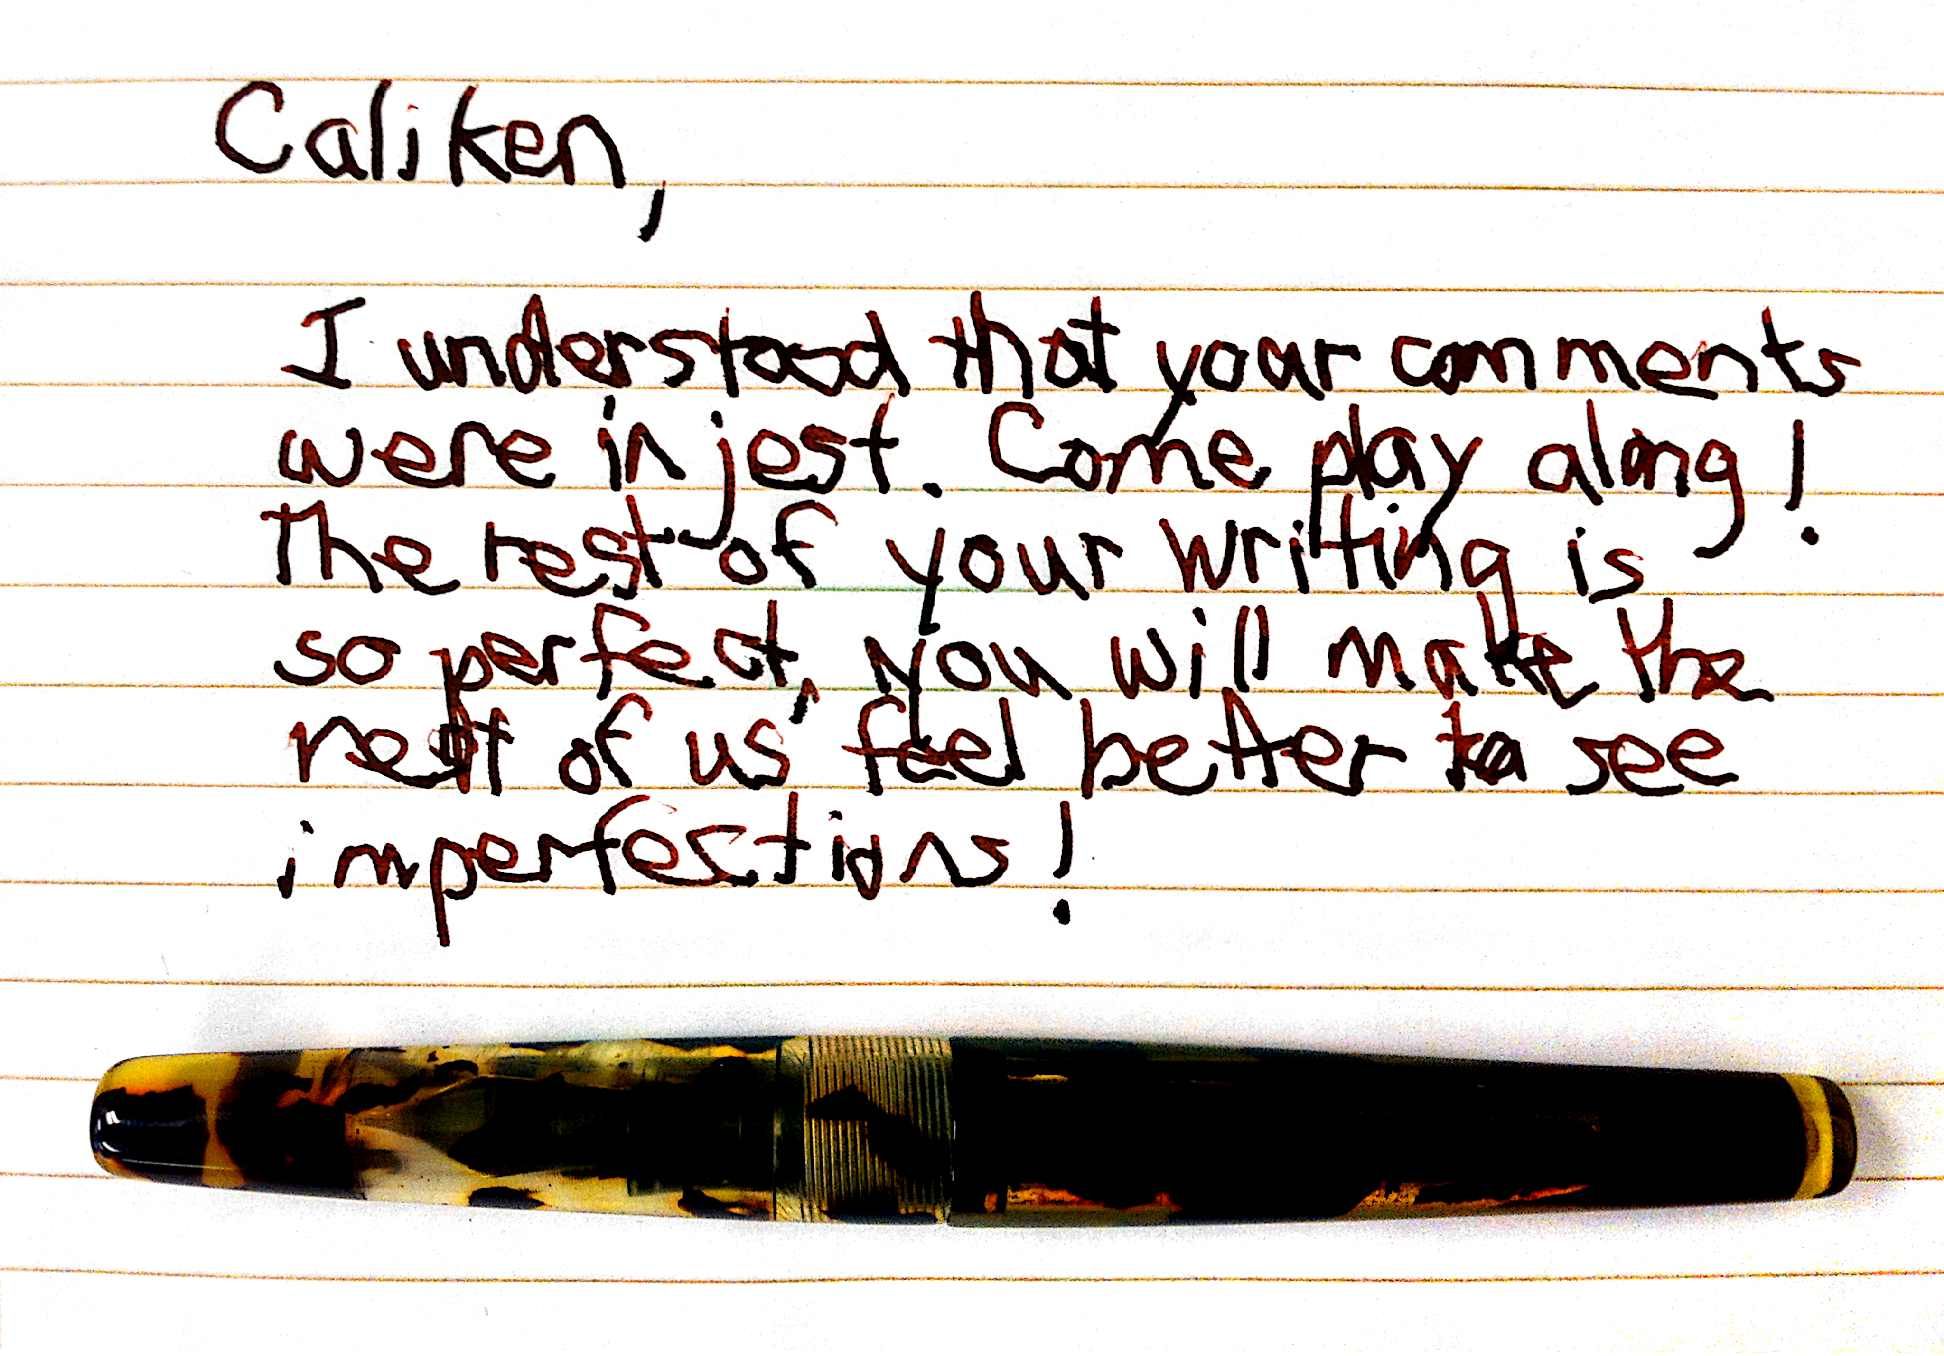 Caliken,
I understood that your comments
were in jest. Come play along!
The rest of your writing is
so perfect, you will make the
rest of us feel better to see
imperfections!